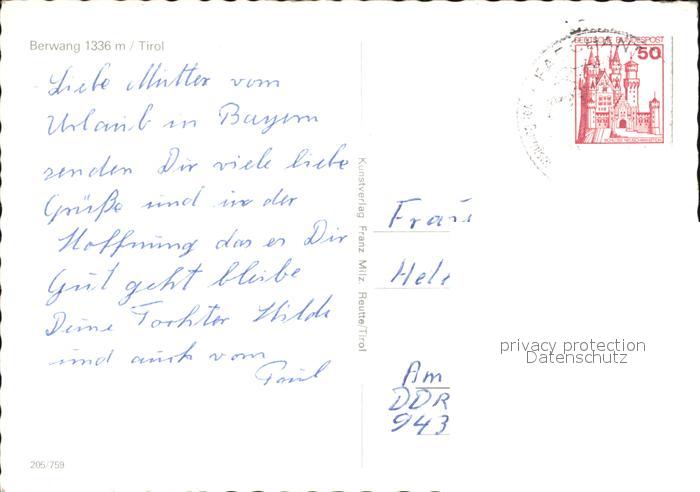 Berwang 1336 m / Tirol
Liebe Mutter vom
Urlaub in Bayern
senden Dir viele liebe
Grüße und in der
Hoffnung das es Dir
Gut geht bleibe
Deine Tochter Hilde
und auch vom
Paul
205/759
Kunstverlag Franz Milz, Reutte/Tirol
DEUTSCHE BUNDESPOST
50
SCHLOSS NEUSCHWANSTEIN
Frau
Hele
privacy protection
Datenschutz
Am
DDR
943